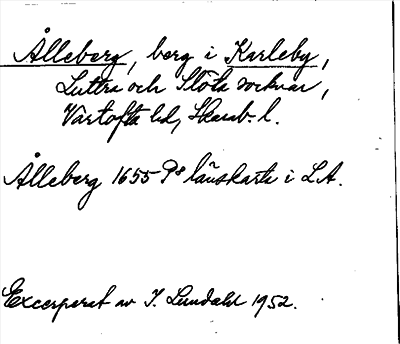 Ålleberg, berg i Karleby,
Luttra och Slöta socknar,
Vartofta hd, Skarab. l.
Ålleberg 1655 P8 länskarta i L.A.
Excerperat av I. Lundahl 1952.